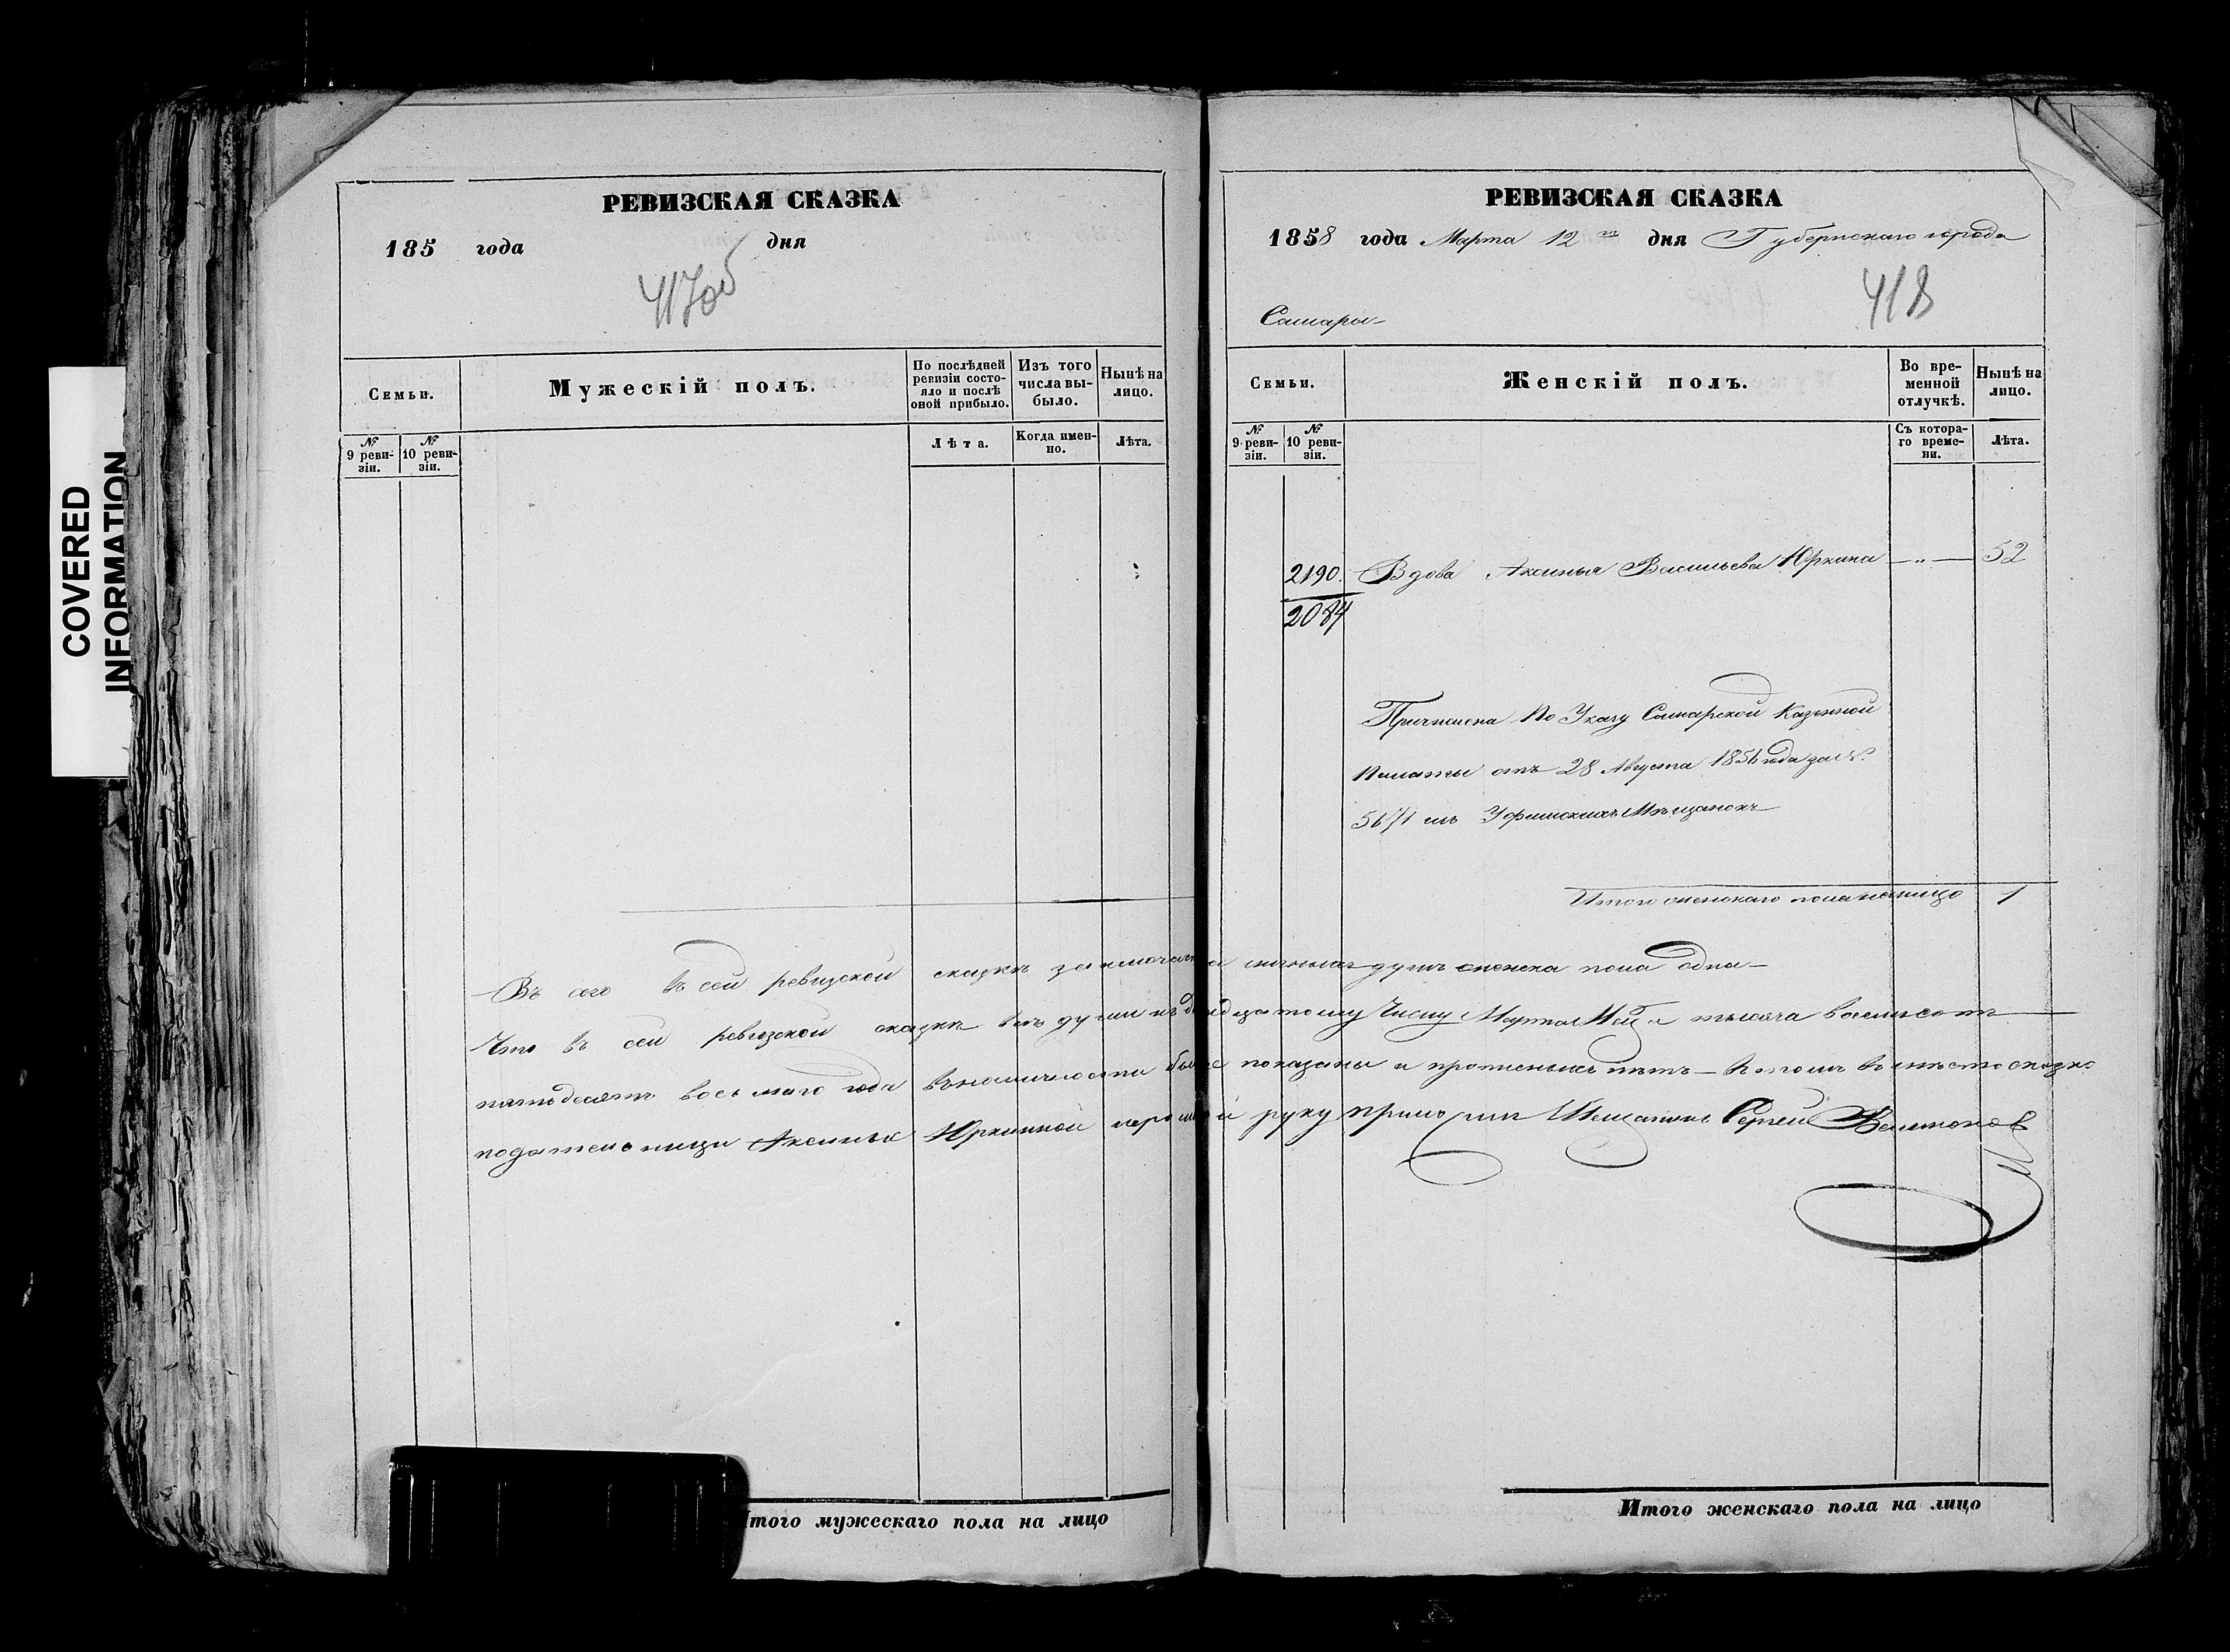 COVERED
INFORMATION
РЕВИЗСКАЯ СКАЗКА
185 года дня
417об
Семьи.
Мужескій полъ.
По послѣдней ревизіи состояло и послѣ оной прибыло.
Изъ того числа выбыло.
Нынѣ на лицо.
№ 9 ревизіи.
№ 10 ревизіи.
Лѣта.
Когда именно.
Лѣта.
РЕВИЗСКАЯ СКАЗКА
1858 года Марта 12 дня Губернскаго города
418
Самары
Семьи.
Женскій полъ.
Во временной отлучкѣ.
Нынѣ на лицо.
№ 9 ревизіи.
№ 10 ревизіи.
Съ котораго времени.
Лѣта.
2190. Вдова Аксинья Васильева Юркина —"— 52
2084
Причислена По Указу Самарской Казенной
Палаты отъ 28 Августа года за №
изъ Уфимскихъ Мѣщанокъ
Итого женскаго пола налицо 1
въ сей ревизской сказкѣ заключается душъ женска пола одна
Что въ сей ревизской сказкѣ всѣ души Числу Марта тысяча восемьсотъ
пятьдесятъ восьмаго года въ наличности показаны и прописныхъ нѣтъ
подательницы Аксиньи Юркиной руку приложилъ Мещанинъ Сергей
Итого мужескаго пола на лицо
Итого женскаго пола на лицо